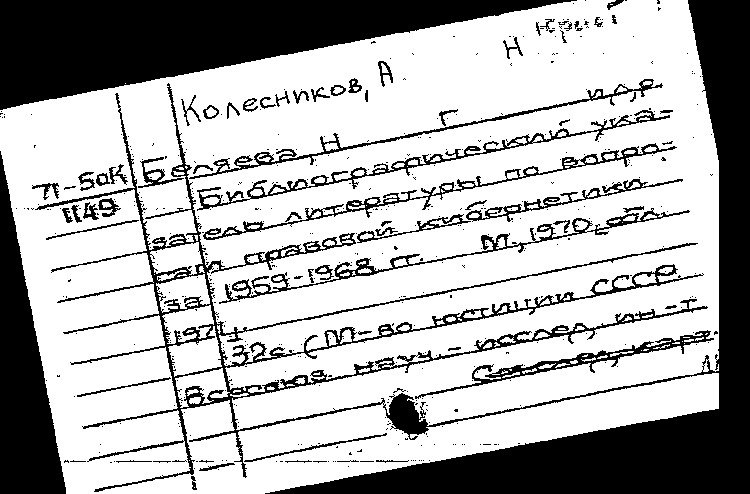 Н Юрист
Колесников, А
71-50к Беляева, Н Г и др
1149 Библиографический ука-
затель литературы по вопро-
сам правовой кибернетики
за 1959-1968 гг. М., 1970, обл.
1971.
32с. (М-во юстиции СССР
Всесоюз. науч.-исслед, ин-т
См. след, карт.